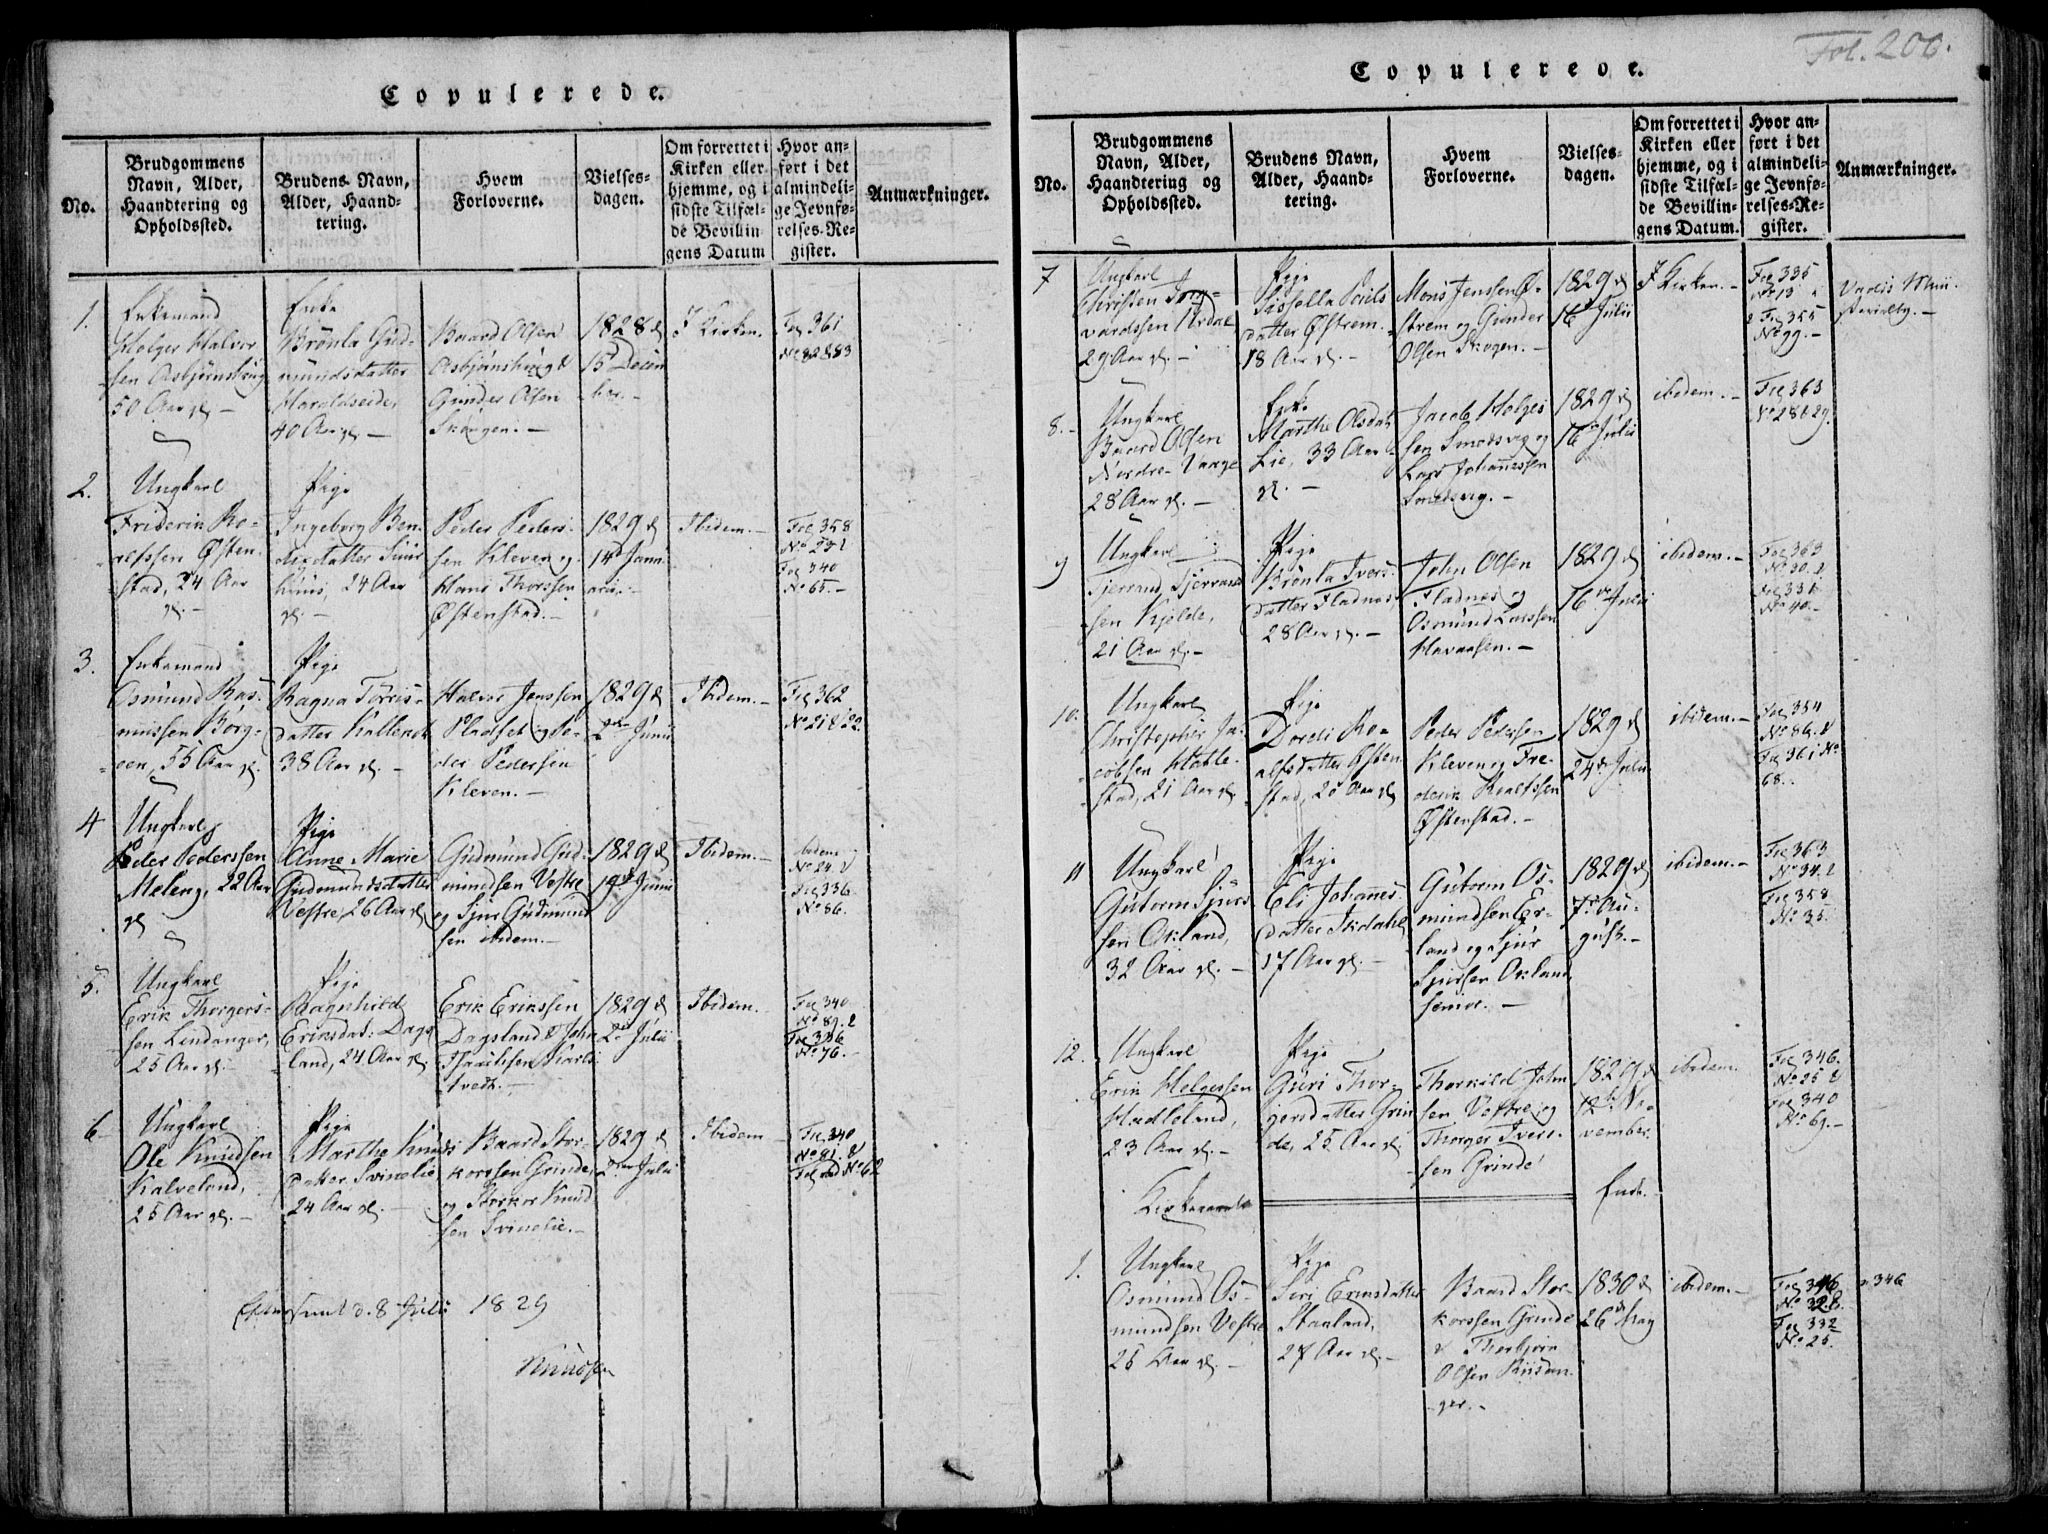 Copulerede.
No.
Brudgommens
Navn, Alder,
Haandtering og
Opholdssted.
Brudens Navn,
Alder, Haand-
tering.
Hvem
Forloverne.
Vielses-
dagen.
Om forrettet i
Kirken eller
hjemme, og i
sidste Tilfæl-
de Bevillin
gens Datum
Hvor an-
ført i det
almindeli-
ge Jevnfø-
relses-Re-
gister.
Anmærkninger.
1.
Enkemand
Holger Halvor
sen Asbjørnshuug
50 Aar gl. -
Enke
Brønla Gud-
mundsdatter
Haroldseide,
40 Aar gl. -
Baard Olsen
Asbjørnshuug &
Gunder Olsen
Skougen. -
1828 d
15 Decem
ber. -
I Kirken.
Fol 361
No 82 & 83
2.
Ungkarl
Friderik Ro-
alfssen Østen-
stad, 24 Aar
gl. -
Pige
Ingeborg Ben-
dixdatter
24 Aar
gl. -
Peder Peders-
sen Kleven og
Hans Thorssen
Østenstad. -
1829 d
14d Janu
arii. -
Ibidem. -
Fol 358
Fol 340
No 65. -
3.
Enkemand
Osmund Ras-
mussen Borg-
een, 55 Aar gl.
Pige
Ragna Tørris-
datter
38 Aar gl. -
Halvor Jenssen
og Pe-
der Pedersen
Kleven. -
1829 d
2den Junii
Ibidem. -
Fol 362
No 21 & 22
4
Ungkarl
Peder Pederssen
Meleng, 22 Aar
gl
Pige
Anne Marie
Gudmundsdatter
Vestre, 26 Aar gl
Gudmund Gud-
mundsen Vestre
og Sjur Gudmund
sen ibidem. -
1829 d
19de Junii
Ibidem. -
ibidem
No 24. &
Fol 336
No 86.
5.
Ungkarl
Erik Thorgers-
sen Lindanger,
25 Aar gl.
Pige
Ragnhild
Eriksdat: Dags
land, 24 Aar gl
Erik Erikssen
Dagsland & John
tvedt. -
1829 d
2d Julii
Ibidem.
Fol 340
No 89. &
Fol 336
No 76. -
6
Ungkarl
Ole Knudsen
Kalveland,
25 Aar gl. -
Pige
Marthe Knuds
datter Svinelie
24 Aar gl. -
Baard Stor-
korssen Grinde,
og Storkor Knud
sen Svinelie. -
1829 d
2den Julii
Ibidem
Fol 340
No 81. &
No 62
d. 8 Julii 1829
Knudsen
Fol. 206.
Copulerede.
No.
Brudgommens
Navn, Alder,
Haandtering og
Opholdssted.
Brudens Navn,
Alder, Haand-
tering.
Hvem
Forloverne.
Vielses-
dagen.
Om forrettet i
Kirken eller
hjemme, og i
sidste Tilfæl-
de Bevillin-
gens Datum.
Hvor an-
ført i det
almindeli-
ge Jevnfø-
relses-Re-
gister.
Anmærkninger.
7
Ungkarl
Christen
vardssen
29 Aar gl. -
Pige
Sissella Pouls
datter Østrem.
18 Aar gl. -
Mons Jenssen Ø-
strem og Gunder
Olsen Skogen. -
1829 d
16 Julii
I Kirken. -
Fol 335
No 13
& Fol 355
No 99. -
8. -
Ungkarl
Baard Olsen
Nordre-Vaage
28 Aar gl. -
Enke
Marthe Olsdat
Lie, 33 Aar
gl. -
Jacob Holges
sen Smedsvig og
Lars Johannessen
Smedsvig. -
1829 d
16 Julii
ibidem. -
Fol 363
No 28 & 29.
9
Ungkarl
Tjerrand Tjerrand
sen Kjølde,
21 Aar gl. -
Pige
Brønla Ivers-
datter Fladnes,
28 Aar gl. -
John Olsen
Fladnes og
Osmund Larssen
Havaasen. -
1829 d
16de Julii
ibidem. -
Fol 363
No 30. &
Fol 331
No 40. -
10.
Ungkarl
Christopher Ja-
cobsen Hatle-
stad, 21 Aar gl
Pige
Dordi Ro-
alfsdatter Østen
stad, 20 Aar gl
Peder Pedersen
Kleven og Fre-
derik Roalfssen
Østenstad. -
1829 d
24de Julii
ibidem. -
Fol 354
No 86. &
Fol 361 No
68. -
11
Ungkarl
Gutorm Sjurs
sen Økland,
32 Aar gl. -
Pige
Eli Johanes
datter
17 Aar gl. -
Gutorm Os-
mundsen Er-
land og Sjur
Sjursen Økland
senior. -
1829 d
7de Au-
gust. -
ibidem. -
Fol 363
No 34. &
Fol 358
No 35.
12.
Ungkarl
Erik Helgessen
Hadleland,
23 Aar gl. -
Pige
Guri Thor-
gersdatter Grin
de, 25 Aar gl.
Thorkild John
sen Vestre og
Thorger Ivers-
sen Grinde
1829 d
12te No-
vember.
ibidem.
Fol 346.
No 25 &
Fol 340
No 69. -
Ende. -
1.
Ungkarl
Osmund Os-
mundsen Vestre
26 Aar gl. -
Pige
Siri Ericsdatter
Stanland,
27 Aar gl. -
Baard Stor-
korssen Grinde
& Thorbjørn
Olsen
ger. -
1830 d
26de May
ibidem. -
Fol 346
No 328.
Fol 332
No 25.
346